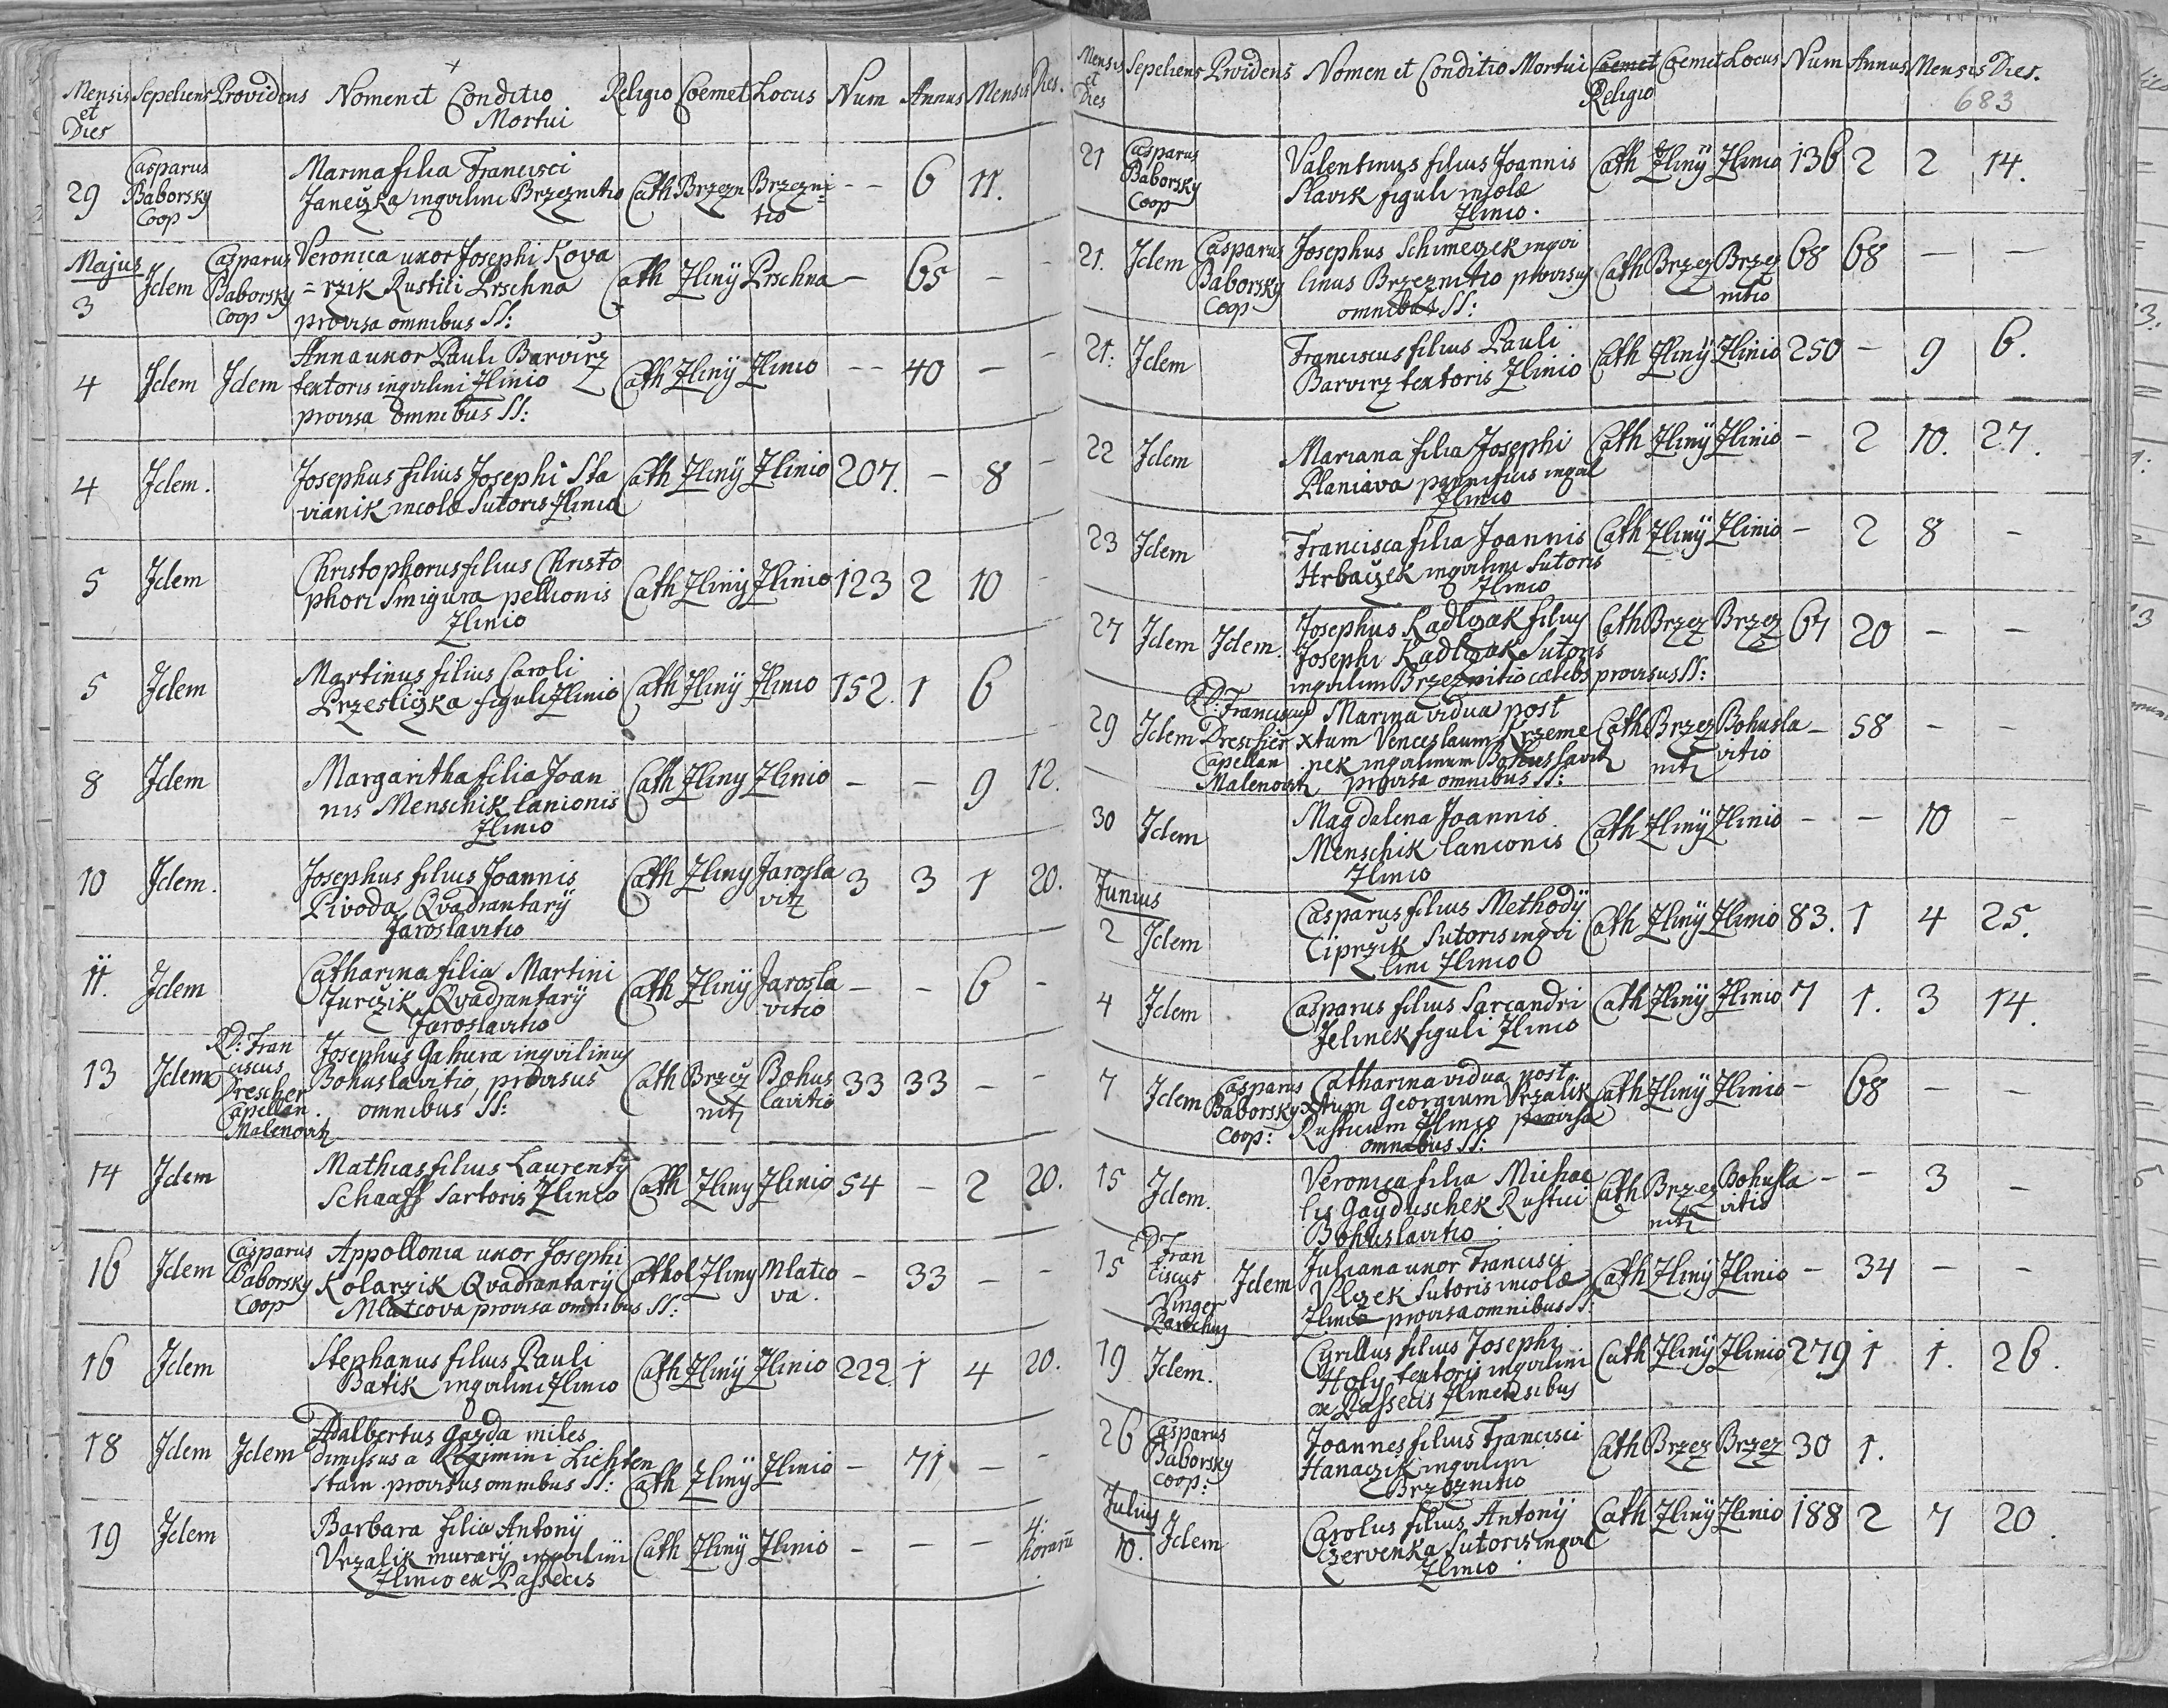 Mensis et Dies Sepeliens Providens Nomen et Conditio Mortui Religio Coemet Locus Num Annus Mensis Dies.
29 Casparus Baborsky Coop Marina filia Francisci
Janeczka inqvilini Brzeznitio Cath Brzezn Brzezni=
tio - - 6 11.
Majus
3 Idem Casparus Baborsky Coop Veronica uxor Josephi Kova
=rzik Rustici Prschna Cath Zlinÿ Prschna - 65 - -
provisa omnibus SS:
4 Idem Idem Anna uxor Pauli Barvirz
textoris inqvilini Zlinio Cath Zlinÿ Zlinio - - 40 - -
provisa omnibus SS:
4 Idem. Josephus filius Josephi Sta
vianik incolæ Sutoris Zlinio Cath Zlinÿ Zlinio 207. - 8 -
5 Idem Christophorus filius Christo
phori Smigura pellionis Cath Zlinÿ Zlinio 123 2 10 -
Zlinio
5 Idem Martinus filius Caroli
Przesliczka figuli Zlinio Cath Zlinÿ Zlinio 152. 1 6 -
8 Idem Margaritha filia Joan
nis Menschik lanionis Cath Zliny Zlinio - - 9 12.
Zlinio
10 Idem. Josephus filius Joannis
Pivoda Qvadrantarÿ Cath Zliny Jarosla
vitz 3 3 1 20.
Jaroslavitio
11. Idem Catharina filia Martini
Jurczik Qvadrantarÿ Cath Zlinÿ Jarosla
vitio - - 6 -
Jaroslavitio
13 Idem RD: Fran
ciscus
Drescher
Capellan.
Malenovitz
Josephus Gahura inqvilinus
Bohuslavitio, provisus Cath Brzez
nitz Bohus
lavitio 33 33 - -
omnibus SS:
14 Idem Mathias filius Laurentÿ
Schaaff Sartoris Zlinio Cath Zliny Zlinio 54 - 2 20.
16 Idem Casparus Baborsky Coop Appollonia uxor Josephi
Kolarzik Qvadrantarÿ Cathol Zliny Mlatco
va. - 33 - -
Mlatcova provisa omnibus SS:
16 Idem Stephanus filius Pauli
Batik inqvilini Zlinio Cath Zlinÿ Zlinio 222. 1 4 20.
18 Idem Idem Adalbertus Gayda miles
dimissus a Regimini Lichten
stain provisus omnibus SS: Cath Zlinÿ Zlinio - 71 - -
19 Idem Barbara filia Antonÿ
Vrzalik murarÿ inqvilini Cath Zlinÿ Zlinio - - - 4:
horarū
Zlinio ex Passecis
Mensis et Dies Sepeliens Providens Nomen et Conditio Mortui Coemet Religio Coemet Locus Num Annus Mensis Dies.
683
21 Casparus Baborsky Coop Valentinus filius Joannis
Slavik figuli incolæ
Zlinio. Cath Zlinÿ Zlinio 136 2 2 14.
21. Idem Casparus Baborsky Coop Josephus Schimeczek inqvi
linus Brzeznitio provisus
omnibus SS: Cath Brzez Brzez
nitio 68 68 - -
21: Idem Franciscus filius Pauli
Barvirz textoris Zlinio Cath Zlinÿ Zlinio 250 - 9 6.
22 Idem Mariana filia Josephi
Planiava pannificis inqvil
Zlinio Cath Zlinÿ Zlinio - 2 10. 27.
23 Idem Francisca filia Joannis
Hrbaczek inqvilini Sutoris
Zlinio Cath Zlinÿ Zlinio - 2 8 -
27 Idem Idem. Josephus Kadlczak filius
Josephi Kadlczak Sutoris
inqvilini Brzeznitio cælebs provisus SS: Cath Brzez Brzez 67 20 - -
29 Idem RD: Franciscus
Drescher
Capellan
Malenovitz
Marina vidua post
xtum Venceslaum Krzeme
nek inqvilinum Bohuslavitz
provisa omnibus SS: Cath Brzez
nitz Bohusla
vitio - 58 - -
30 Idem Magdalena Joannis
Menschik lanionis
Zlinio Cath Zlinÿ Zlinio - - 10 -
Junius
2 Idem Casparus filius Methodÿ
Ciprzik Sutoris inqvi
lini Zlinio Cath Zlinÿ Zlinio 83. 1 4 25.
4 Idem Casparus filius Sarcandri
Jelinek figuli Zlinio Cath Zlinÿ Zlinio 7 1. 3 14.
7 Idem Casparus Baborsky Coop: Catharina vidua post
xtum Georgium Vrzalik
Rusticum Zlinio provisa
omnibus SS: Cath Zlinÿ Zlinio - 68 - -
15 Idem. Veronica filia Michae
lis Gayduschek Rustici
Bohuslavitio Cath Brzez
nitz Bohusla
vitio - - 3 -
15 D Fran
ciscus
Vinger
Parochus Idem Juliana uxor Francisci
Vlczek Sutoris incolæ
Zlinio provisa omnibus SS: Cath Zlinÿ Zlinio - 34 - -
19 Idem. Cyrillus filius Josephi
Holy textoris inqvilini
ex Passecis Zlinensibus Cath Zlinÿ Zlinio 279 1 1. 26.
26 Casparus Baborsky Coop: Joannes filius Francisci
Hanaczik inqvilini
Brzeznitio Cath Brzez Brzez 30 1.
Julius
10. Idem Carolus filius Antonÿ
Czervenka Sutoris inqvil
Zlinio Cath Zlinÿ Zlinio 188 2 7 20.